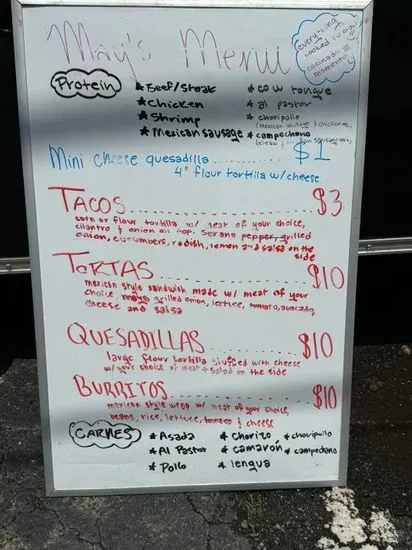 May's Menu
everything cooked to order
cocinado al momento!!!
Protein
* Beef/Steak
* Chicken
* Shrimp
* Mexican sausage
* cow tongue
* al pastor
* choripollo
(mexican sausage & chicken mix)
* campechano
sausage mix)
Mini cheese quesadilla .......... $1
4" flour tortilla w/cheese
TACOS .......... $3
corn or flour tortilla w/ meat of your choice,
cilantro & onion on top. Serano pepper, grilled
onion, cucumbers, radish, lemon and salsa on the
side
TORTAS .......... $10
mexican style sandwich made w/ meat of your
choice mayo grilled onion, lettuce, tomato, avocado,
cheese and salsa
QUESADILLAS .......... $10
large flour tortilla stuffed with cheese
w/your choice of meat + salad on the side
BURRITOS .......... $10
mexican style wrap w/ meat of your choice,
beans, rice, lettuce, tomato & cheese
CARNES
* Asada
* Al Pastor
* Pollo
* Chorizo
* camarón
* lengua
* choripollo
* campechano